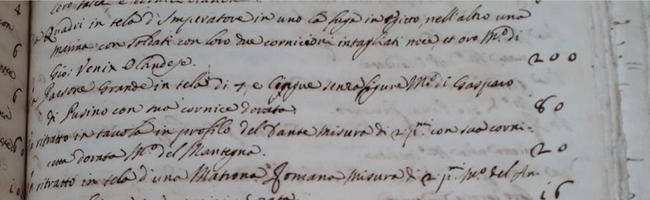 Quadri in tela di Imperatore in uno la fuga in Egitto, nell'altro una
marina con soldati con loro due cornicioni intagliati noce et oro M.o di
Gio: Venix Olandese. 200
Paesone Grande in tela di 7, e cinque senza figure M.o di Gasparo
di Pusino con sua cornice dorata. 80
ritratto in tavola in profilo del Dante misura di 2 p.mi con sua corni-
cetta dorata M.o del Mantegna. 20
ritratto in tela d'una Matrona Romana misura di 2 p.mi M.o del An-
16